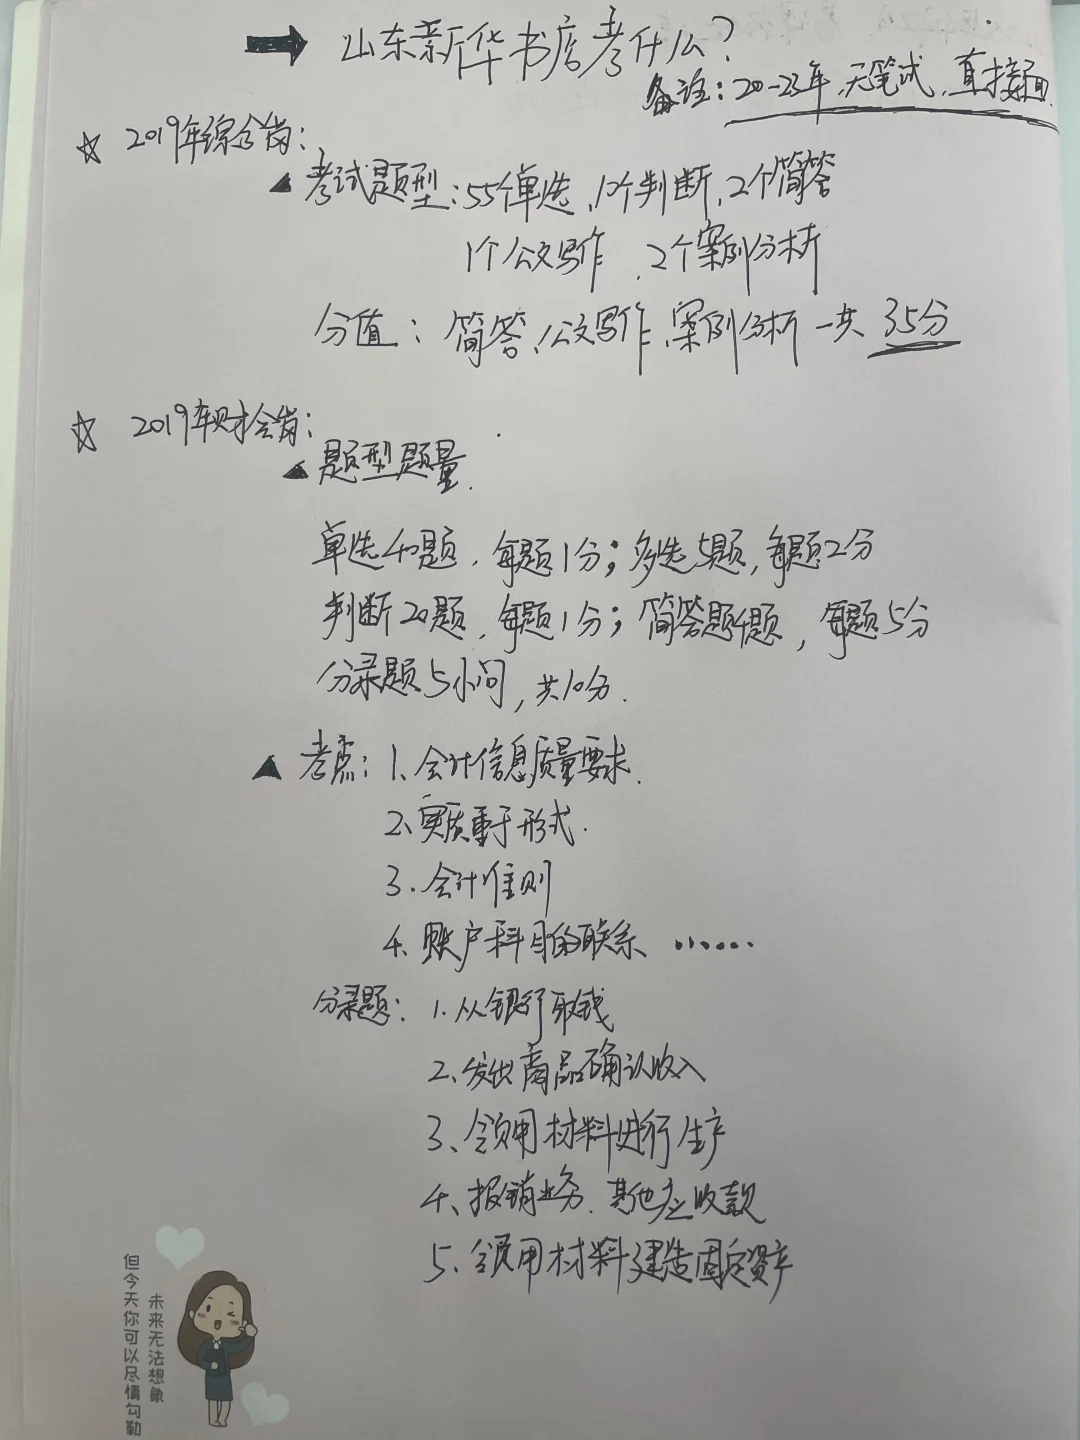 山东新华书店考什么?
备注:20-23年,无笔试,直接面.
☆ 2019年综合岗:
▲ 考试题型:55个单选、10个判断、2个简答
1个公文写作、2个案例分析
分值:简答、公文写作、案例分析一共 35分
☆ 2019年财会岗:
▲ 题型题量.
单选40题,每题1分;多选5题,每题2分
判断20题,每题1分;简答题4题,每题5分
分录题5小问,共10分.
▲ 考点:1、会计信息质量要求.
2、实质重于形式.
3.会计准则
4.账户科目的联系 ......
分录题:1.从银行取钱
2、发出商品确认收入
3、领用材料进行生产
4、报销业务、其他应收款
5、领用材料建造固定资产
未来无法想象
但今天你可以尽情勾勒